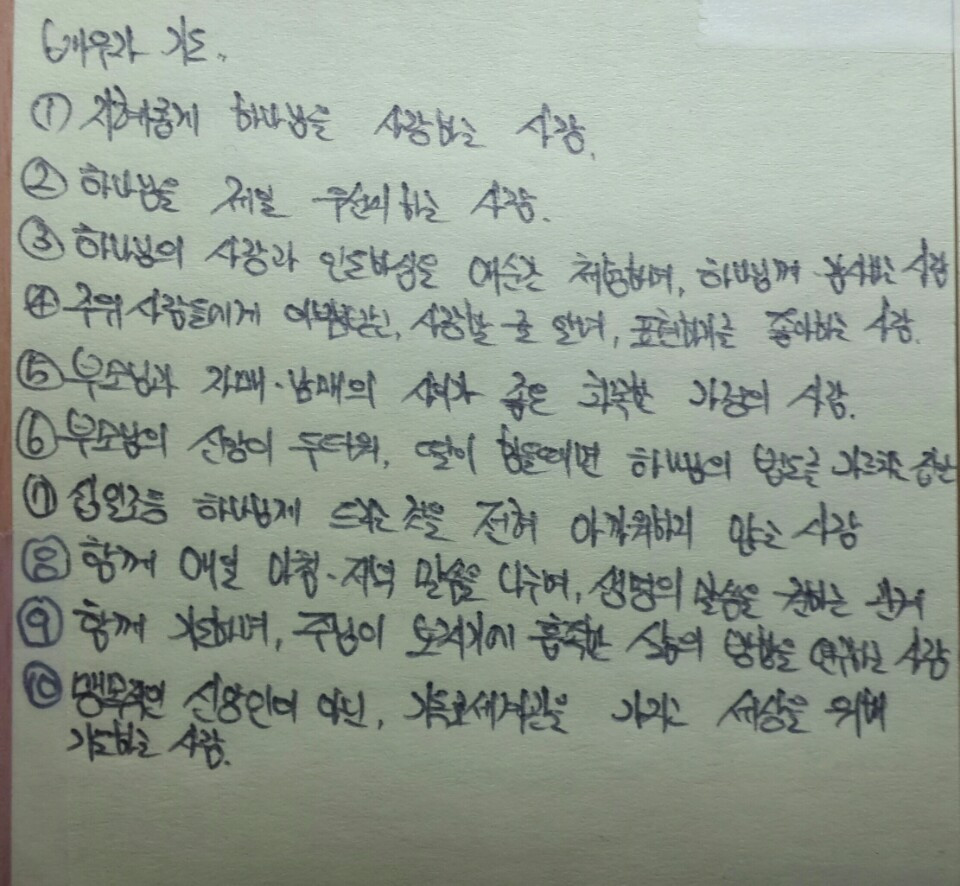 배우자 기도.
① 지혜롭게 하나님을 사랑하는 사람.
② 하나님을 제일 우선시 하는 사람.
③ 하나님의 사랑과 인도하심을 매순간 체험하며, 하나님께 감사하는 사람
④ 주위 사람들에게 사랑할 줄 알며, 표현하기를 좋아하는 사람.
⑤ 부모님과 자매·남매의 사이가 좋은 화목한 가정의 사람.
⑥ 부모님의 신앙이 두터워, 딸이 힘들때면 하나님의 법도를 가르치는 집안
⑦ 십일조등 하나님께 드리는 것을 전혀 아까워하지 않는 사람
⑧ 함께 매일 아침·저녁 말씀을 나누며, 생명의 말씀을 전하는 관계
⑨ 함께 기도하며, 주님이 보시기에 흡족한 삶의 방향을 연구하는 사람
⑩ 맹목적인 신앙인이 아닌, 기독교세계관을 가지고 세상을 위해
기도하는 사람.